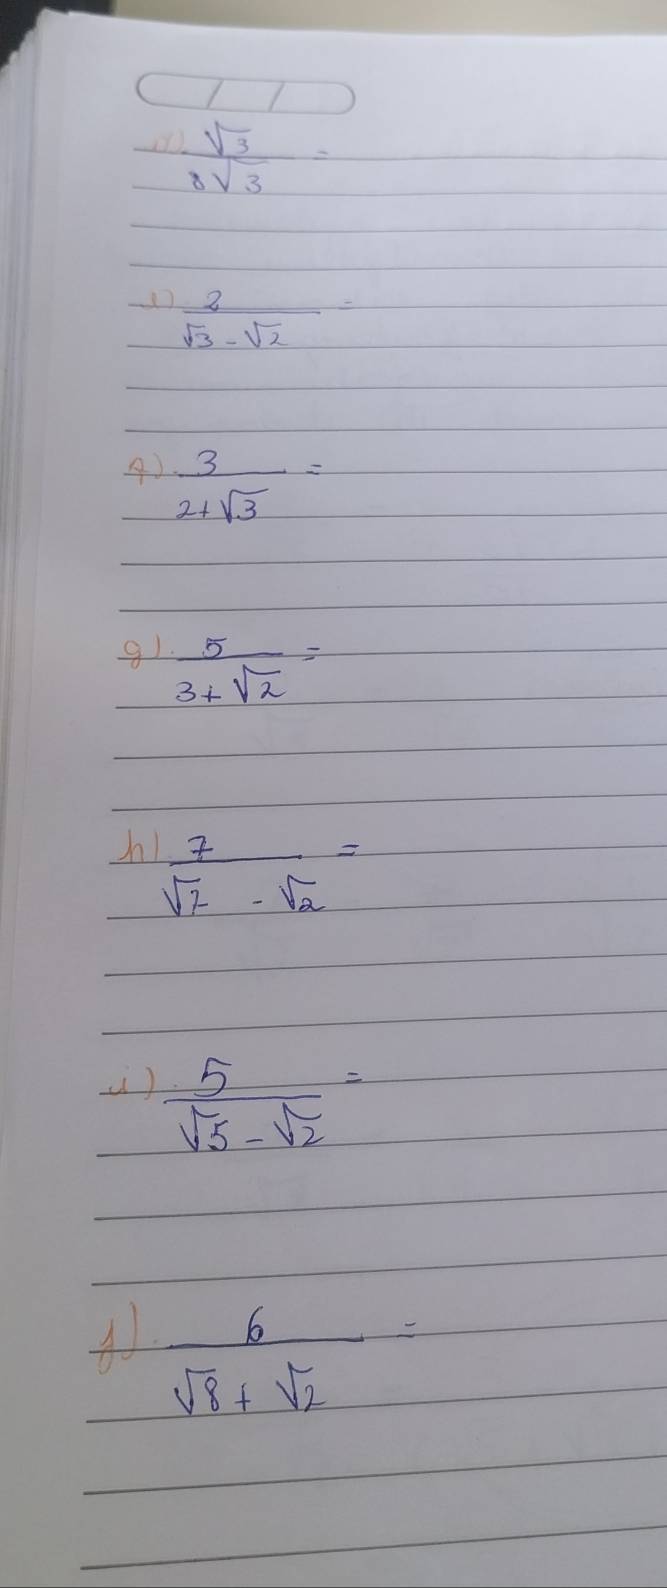 d) √3 / 8√3 =
e) 2 / √3 - √2 =
f) 3 / 2+√3 =
g) 5 / 3+√2 =
h) 7 / √7 - √2 =
i) 5 / √5 - √2 =
j) 6 / √8 + √2 =